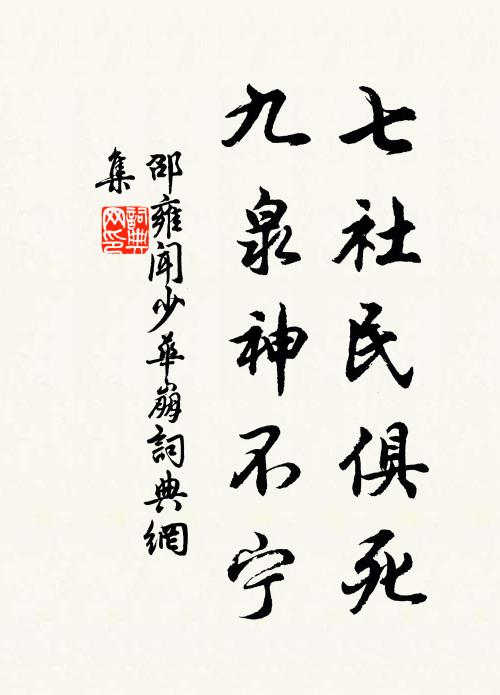 七社民俱死
九泉神不宁
邵雍闻少华崩詞典網
集
詞典
网印